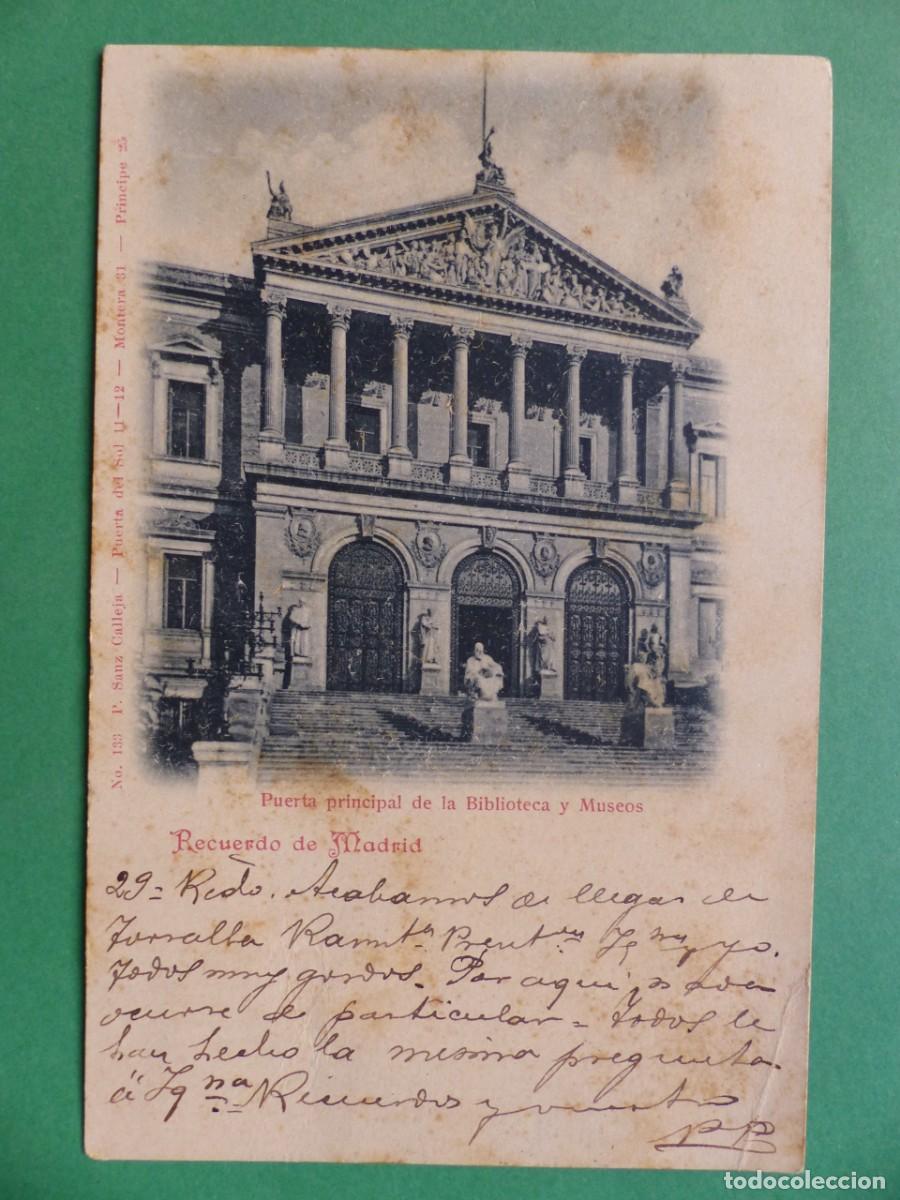 No. 133 P. Sanz Calleja — Puerta del Sol 11—12 — Montera 31 — Principe 25
Puerta principal de la Biblioteca y Museos
Recuerdo de Madrid
29 = Rcdo. Acabamos de llegar de
Torralba yo.
todos muy gordos. Por aqui
ocurre de particular = Todos le
han hecho la misma pregunta
á Ygna = Recuerdos y
PP
todocoleccion
todocoleccion.net